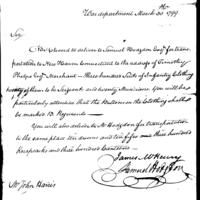 War department March 30th 1799
Sir
You will please to deliver to Samuel Hodgdon Esqr for trans
portation to New Haven Connecticut to the address of Timothy
Phelps Esqr Merchant — Three hundred Suits of Infantry Clothing
twenty of them to be Sergeants and twenty Musicians You will be
particularly attentive that the Buttons on the Clothing shall
be marked 13 Regiment —
You will also deliver to Mr Hodgdon for transportation
to the same place ten drums and ten fifes and three hundred
Knapsacks and three hundred Canteens —
James McHenry
Samuel Hodgdon
Mr John Harris